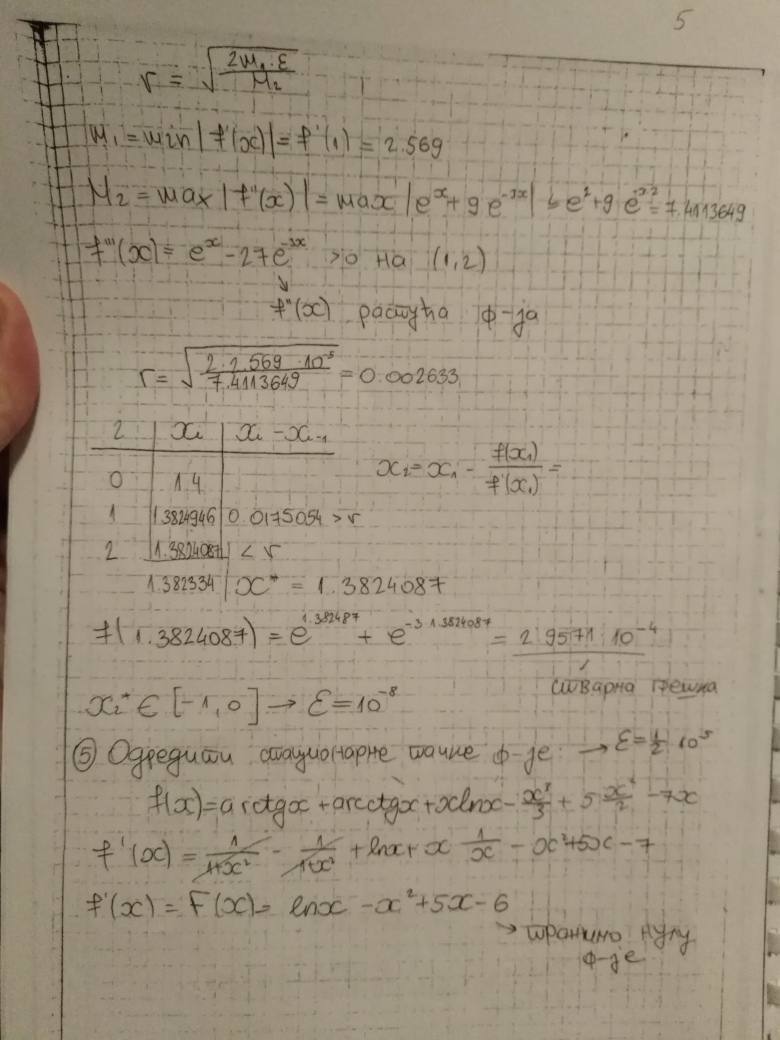 5
r = √(2m₁·ε / M₂)
m₁ = min|f'(x)| = f'(1) = 2.569
M₂ = max|f''(x)| = max|eˣ + 9e⁻³ˣ| ≤ e² + 9e⁻³·² = 7.4113649
f'''(x) = eˣ - 27e⁻³ˣ >0 на (1,2)
↓
f''(x) растућа ф-ја
r = √(2·2.569·10⁻⁵ / 7.4113649) = 0.002633
2 | xᵢ | xᵢ - xᵢ₋₁
x₂ = x₁ - f(x₁)/f'(x₁) =
0 | 1.4
1 | 1.3824946 | 0.0175054 > r
2 | 1.3824087 | < r
1.382334 | x* = 1.3824087
f(1.3824087) = e^1.382487 + e^-3·1.3824087 = 2.9571·10⁻⁴
стварна грешка
x₂* ∈ [-1,0] → ε = 10⁻⁸
⑤ Одредити стационарне тачке ф-је: → ε = ½ 10⁻⁵
f(x) = arctgx + arcctgx + xlnx - x³/3 + 5 x²/2 - 7x
f'(x) = 1/(1+x²) - 1/(1+x²) + lnx + x 1/x - x² + 5x - 7
f'(x) = F(x) = lnx - x² + 5x - 6
→ тражимо нулу
ф-је